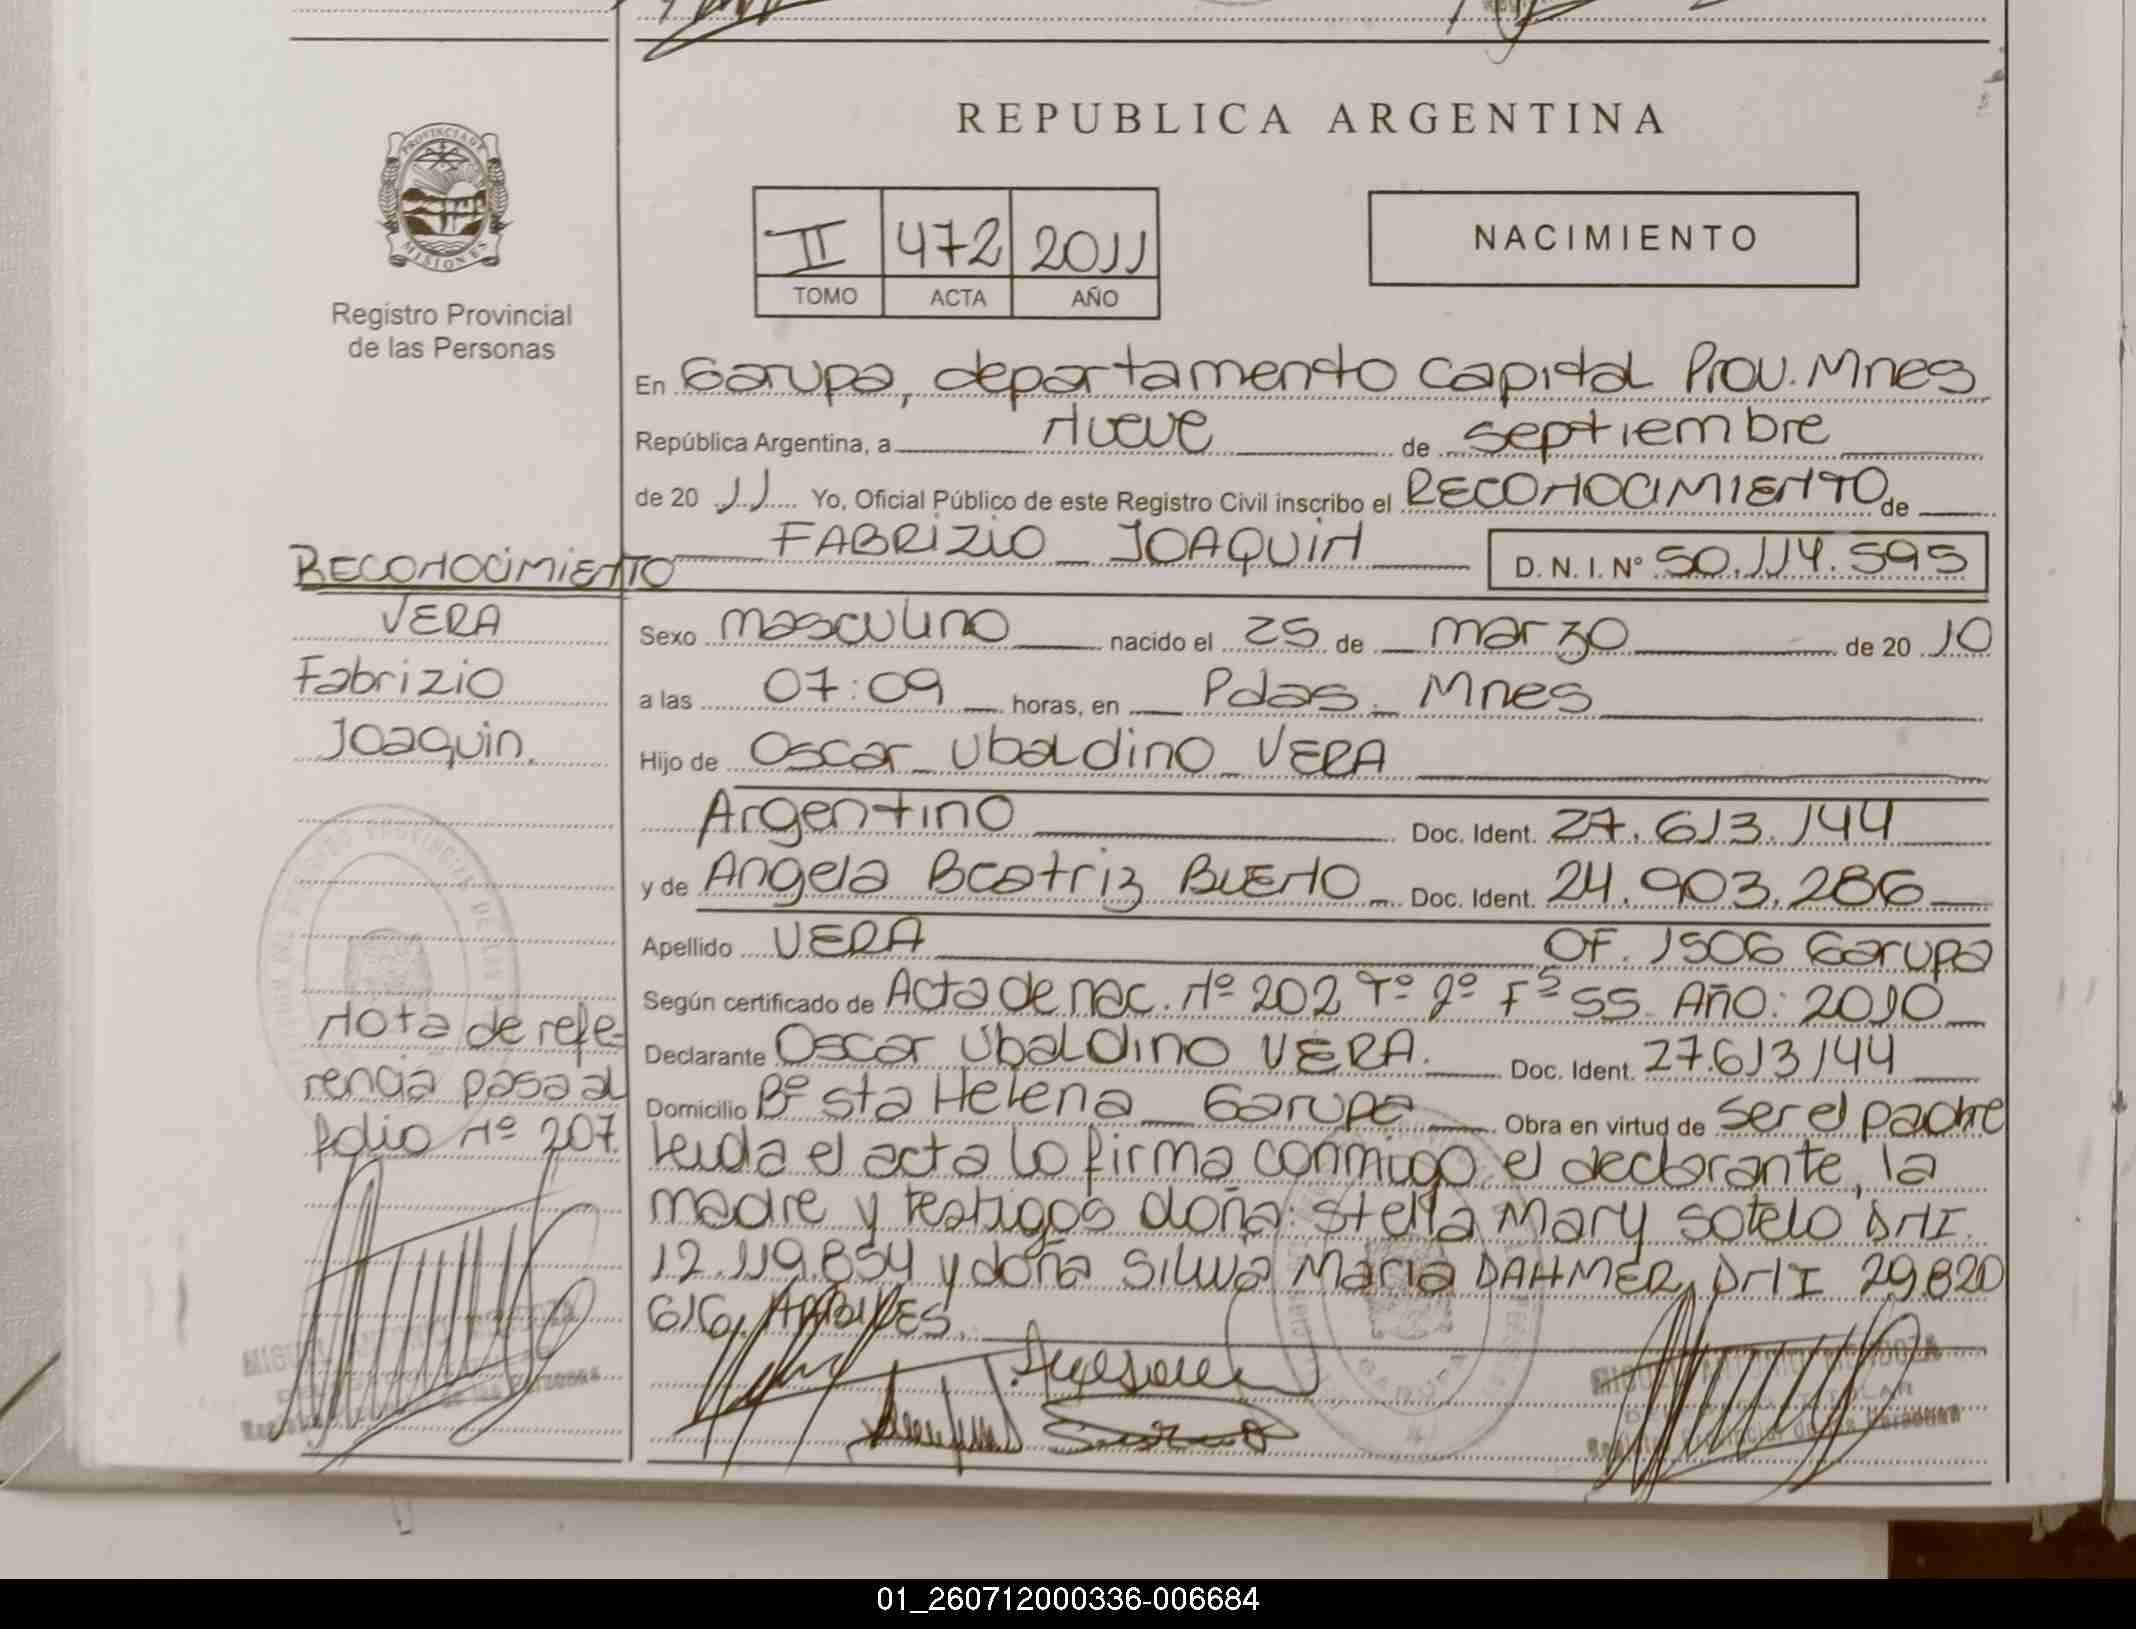 REPUBLICA ARGENTINA
PROVINCIA DE MISIONES
Registro Provincial
de las Personas
II 472 2011
TOMO ACTA AÑO
NACIMIENTO
En Garupa, departamento Capital Prov. Mnes
República Argentina, a Nueve de septiembre
de 20 11 Yo, Oficial Público de este Registro Civil inscribo el RECONOCIMIENTO de
FABRIZIO JOAQUIN D. N. I. N° 50.114.595
RECONOCIMIENTO
VERA
Fabrizio
Joaquin.
Sexo masculino nacido el 25 de marzo de 20 10
a las 07:09 horas, en Pdas. Mnes
Hijo de Oscar Ubaldino VERA
Argentino Doc. Ident. 27.613.144
y de Angela Beatriz BUENO Doc. Ident. 24.903.286
Apellido VERA OF. 1506 Garupa
Según certificado de Acta de nac. Nº 202 Tº 2º Fº 55 Año: 2010
Declarante Oscar Ubaldino VERA. Doc. Ident. 27.613144
Domicilio Bº Sta Helena Garupa Obra en virtud de ser el padre
leida el acta lo firma conmigo el declarante, la
madre y testigos doña: Stella Mary Sotelo DNI.
12.119.854 y doña Silvia Maria DAHMER, DNI 29.820
616,
Nota de refe-
rencia pasa al
folio Nº 207.
01_260712000336-006684